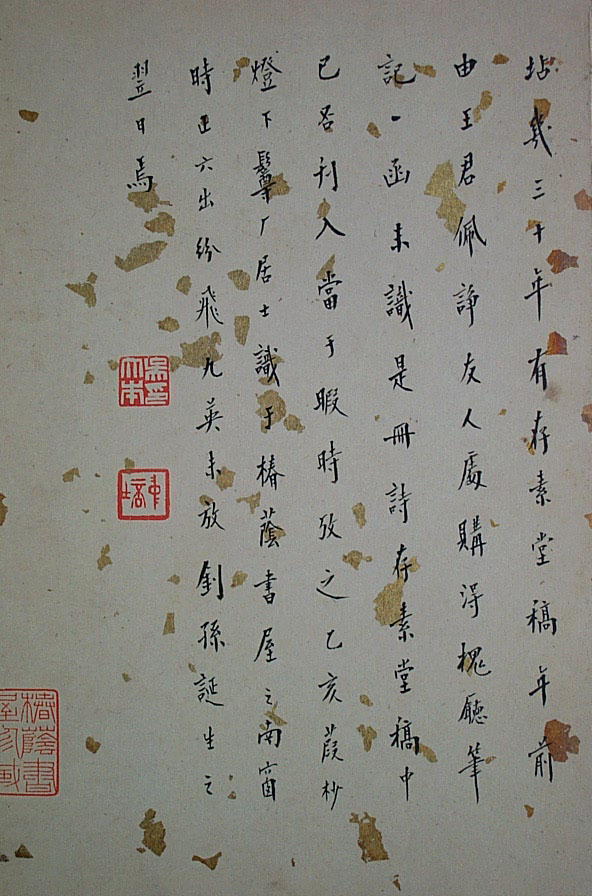 坫幾三十年有存素堂稿年前
由王君佩諍友人處購得槐廳筆
記一函未識是冊詩存素堂稿中
已否刊入當于暇時攷之乙亥葭杪
燈下鬡厂居士識于椿蔭書屋之南窗
時正六出紛飛九英未放釗孫誕生之
翌日焉
椿蔭書屋